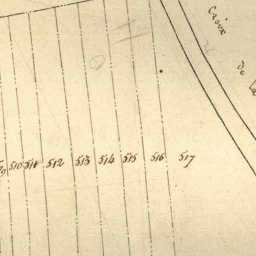 Croix
de
510 511 512 513 514 515 516 517